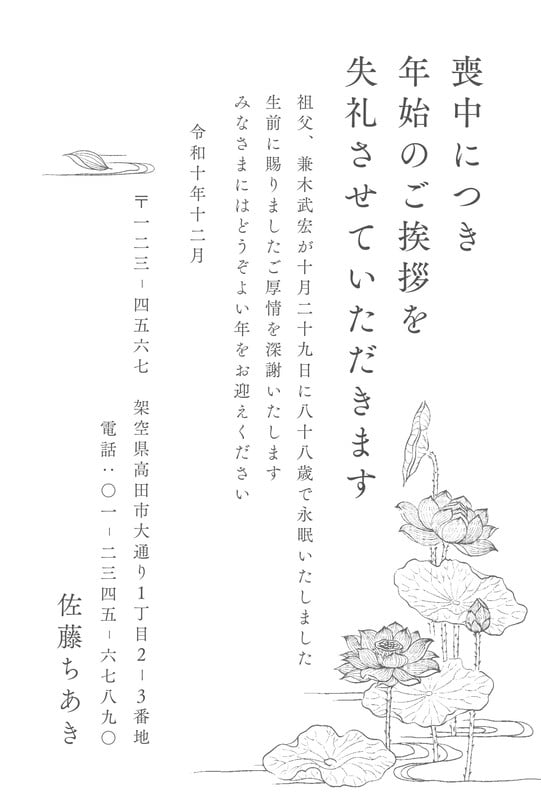 喪中につき
年始のご挨拶を
失礼させていただきます
祖父、兼木武宏が十月二十九日に八十八歳で永眠いたしました
生前に賜りましたご厚情を深謝いたします
みなさまにはどうぞよい年をお迎えください
令和十年十二月
〒一二三－四五六七　架空県高田市大通り1丁目2－3番地
電話：〇一－二三四五－六七八九〇
佐藤ちあき